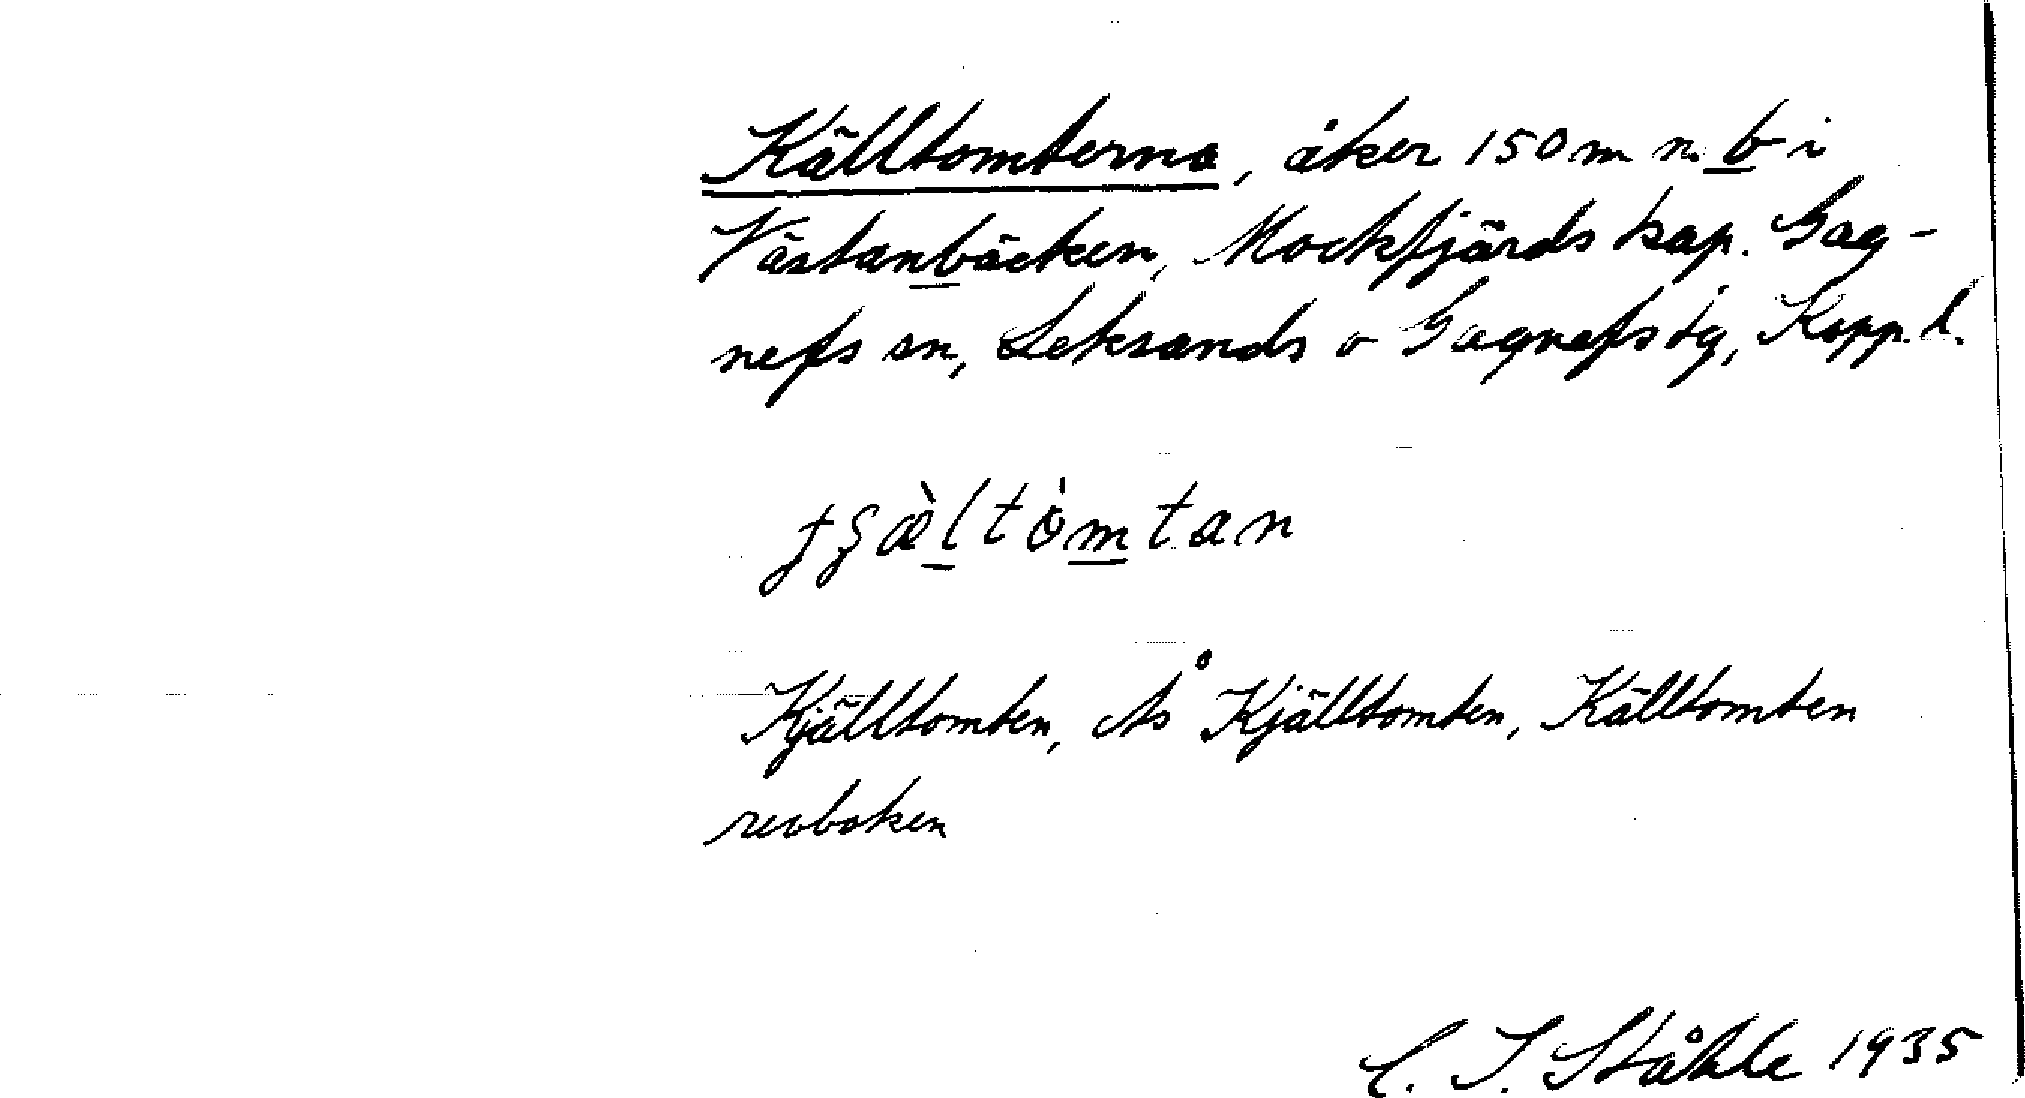 Källtomterna, åker 150 m n. b i
Västanbäcken, Mockfjärds kap. Gag-
nefs sn, Leksands o Gagnefs tg, Kopp. l.
tʂæ̀ltòmtan
Kjälltomten, Ås Kjälltomten, Källtomten
revboken
C. I. Ståhle 1935